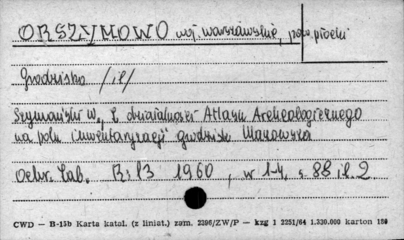 ORSZYMOWO woj. warszawskie, pow. płocki
Grodzisko /il/
Szymański W., Z działalności Atlasu Archeologicznego
na polu inwentaryzacji grodzisk Mazowsza
R: 13 1960, z. 1-4, s. 88 il. 2
CWD — B-15b Karta katal. (z liniat.) zam. 2396/ZW/P — kzg 1 2251/64 1.330.000 karton